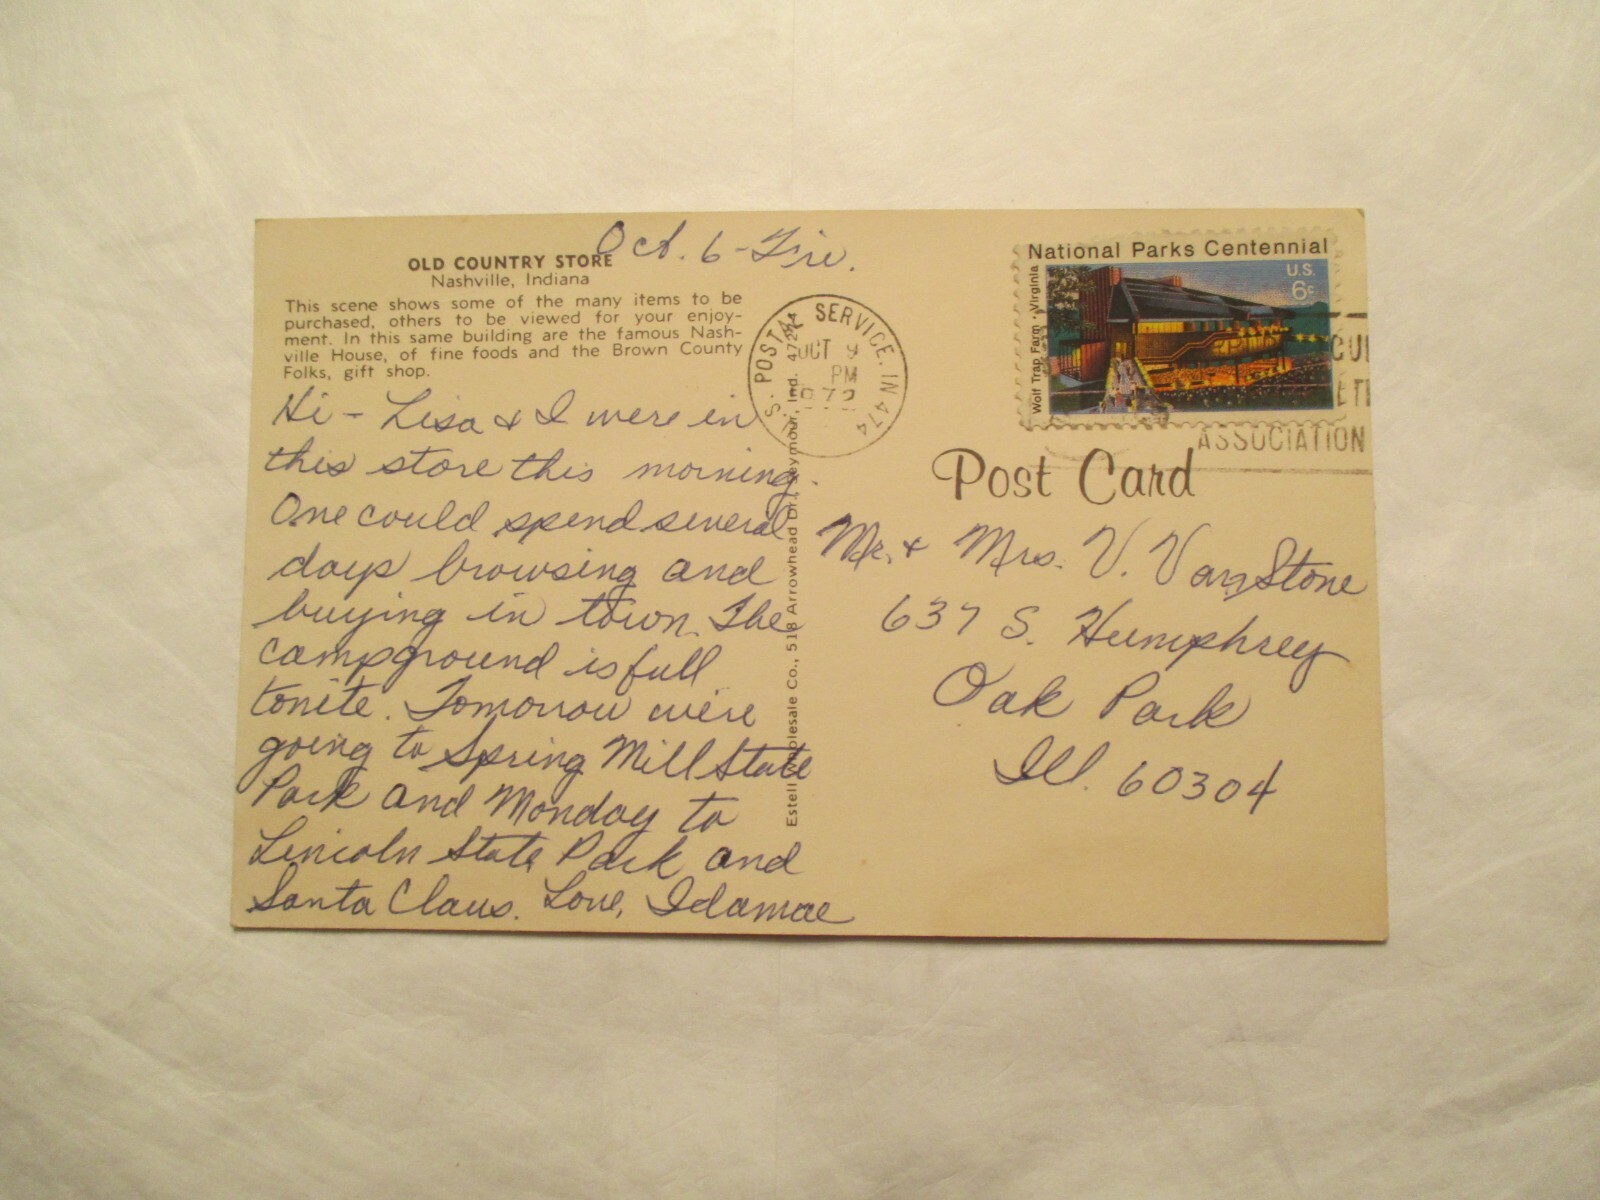 Oct. 6 - Fri.
OLD COUNTRY STORE
Nashville, Indiana
This scene shows some of the many items to be
purchased, others to be viewed for your enjoy-
ment. In this same building are the famous Nash-
ville House, of fine foods and the Brown County
Folks, gift shop.
Hi - Lisa & I were in
this store this morning.
One could spend several
days browsing and
buying in town. The
campground is full
tonite. Tomorrow we're
going to Spring Mill State
Park and Monday to
Lincoln State Park and
Santa Claus. Love, Idamae
Estell Wholesale Co., 518 Arrowhead Dr., Seymour, Ind. 47274
U.S. POSTAL SERVICE, IN 474
OCT 9
PM
1972
National Parks Centennial
U.S.
6c
Wolf Trap Farm · Virginia
ASSOCIATION
Post Card
Mr. & Mrs. V. VanStone
637 S. Humphrey
Oak Park
Ill. 60304